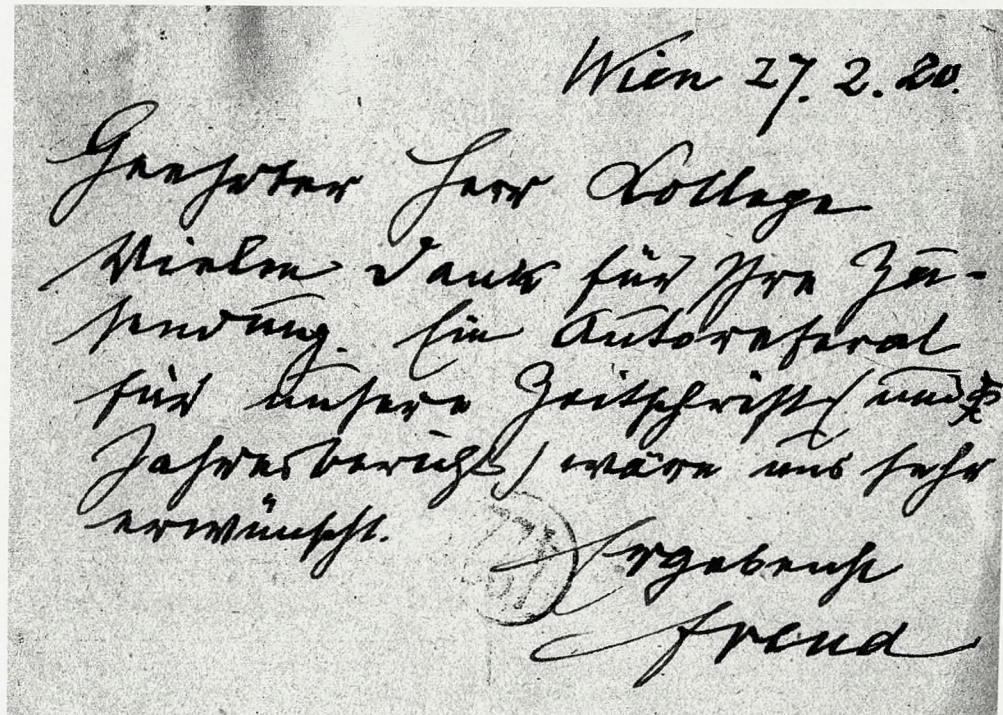 Wien 27. 2. 20.
Geehrter Herr Kollege
Vielen Dank für Ihre Zu-
sendung. Ein Autoreferat
für unsere Zeitschrift (und
Jahresbericht) wäre uns sehr
erwünscht.
Ergebenst
Freud